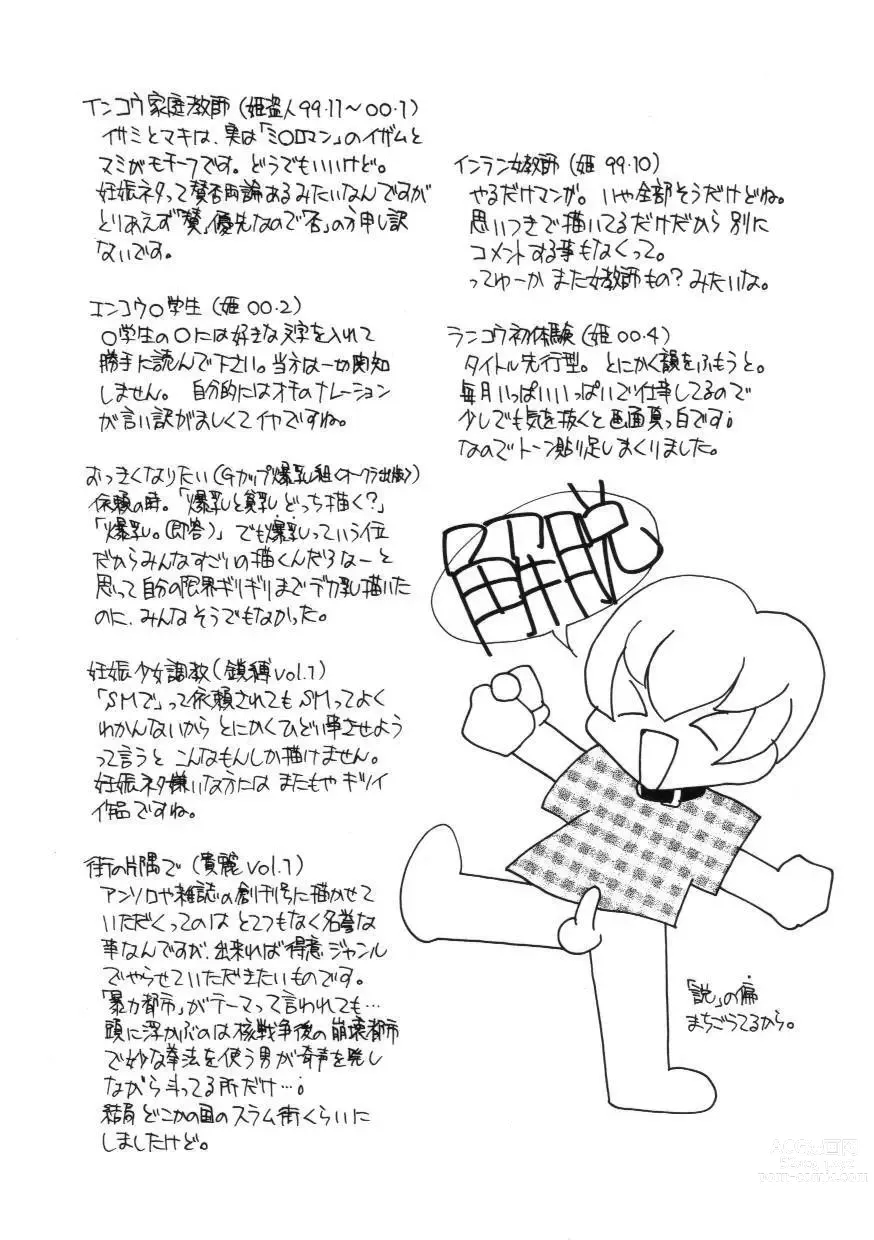 インコウ家庭教師 (姫盗人99・11〜00・1)
イサミとマキは、実は「ミ○ロマン」のイザムと
マミがモチーフです。どうでもいいけど。
妊娠ネタって賛否両論あるみたいなんですが
とりあえず「賛」優先なので「否」の方申し訳
ないです。
エンコウ○学生 (姫 00・2)
○学生の○には好きな文字を入れて
勝手に読んで下さい。当方は一切関知
しません。 自分的にはオチのナレーション
が言い訳がましくてイヤですね。
おっきくなりたい (Gカップ爆乳組<オークラ出版>)
依頼の時。「爆乳と貧乳どっち描く?」
「爆乳。(即答)」 でも爆乳っていう位
だからみんなすごいの描くんだろなーと
思って自分の限界ギリギリまでデカ乳描いた
のに、みんなそうでもなかった。
妊娠少女調教 (鎖縛 Vol.1)
「SMで」って依頼されても SMってよく
わかんないから とにかくひどい事させよう
って言うと こんなもんしか描けません。
妊娠ネタ嫌いな方には またもや キツイ
作品ですね。
街の片隅で (貴麗 Vol.1)
アンソロや雑誌の創刊号に描かせて
いただくってのは とてつもなく名誉な
事なんですが、出来れば得意ジャンル
でやらせていただきたいものです。
「暴力都市」がテーマって言われても…
頭に浮かぶのは核戦争後の崩壊都市
で妙な拳法を使う男が奇声を発し
ながら斗ってる所だけ…;
結局どこかの国のスラム街くらいに
しましたけど。
インラン女教師 (姫 99・10)
やるだけマンガ。いや全部そうだけどね。
思いつきで描いてるだけだから 別に
コメントする事もなくって。
ってゆーか また女教師もの? みたいな。
ランコウ初体験 (姫 00・4)
タイトル先行型。とにかく韻をふもうと。
毎月いっぱいいっぱいで仕事してるので
少しでも気を抜くと画面真っ白です;
なのでトーン貼り足しまくりました。
「説」の偏
まちごうてるから。